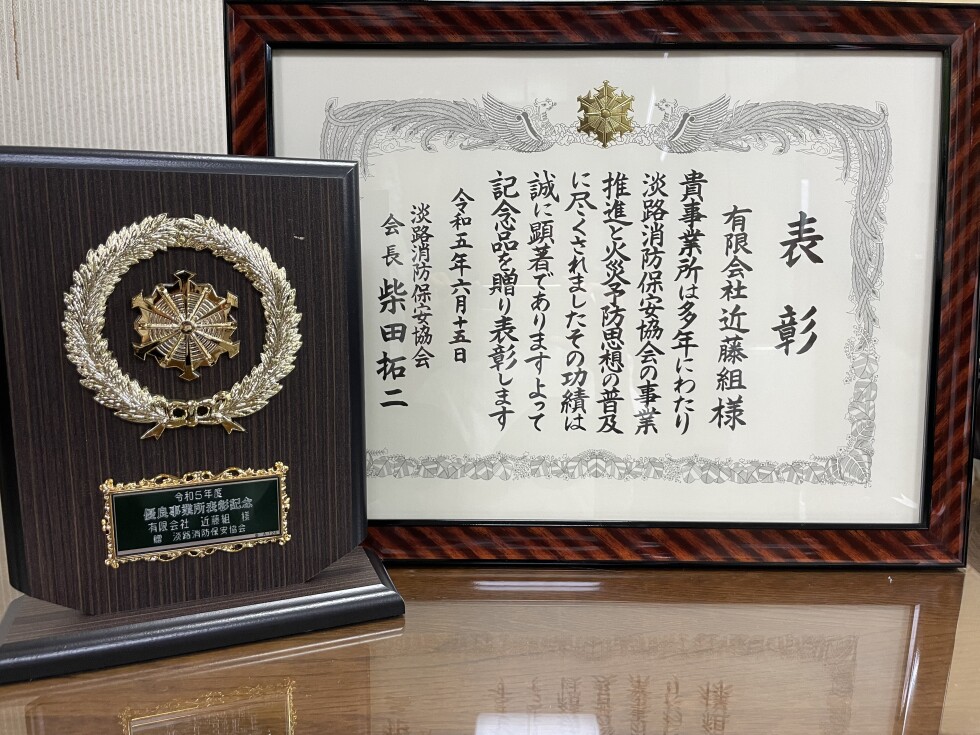 表彰
有限会社近藤組様
貴事業所は多年にわたり
淡路消防保安協会の事業
推進と火災予防思想の普及
に尽くされましたその功績は
誠に顕著でありますよって
記念品を贈り表彰します
令和五年六月十五日
淡路消防保安協会
会長 柴田拓二
令和5年度
優良事業所表彰記念
有限会社 近藤組 様
贈 淡路消防保安協会